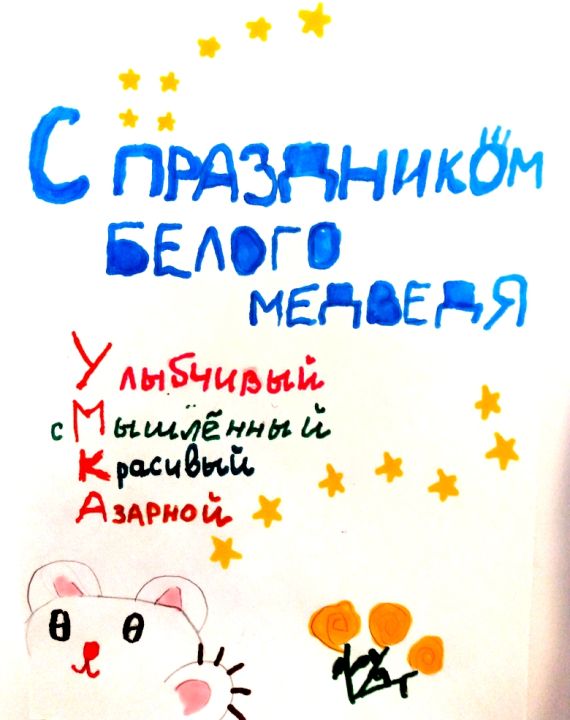 С ПРАЗДНИКОМ
БЕЛОГО
МЕДВЕДЯ
Улыбчивый
сМышлённый
Красивый
АЗАРНОЙ